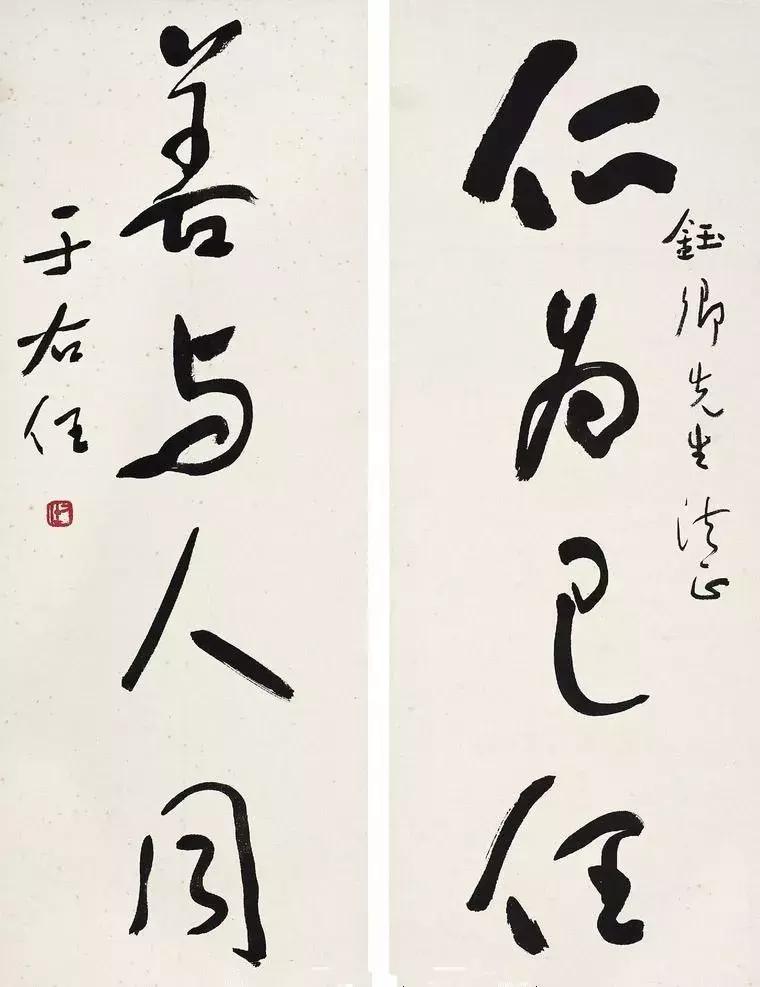 鈺卿先生法正
仁為己任
善与人同
于右任